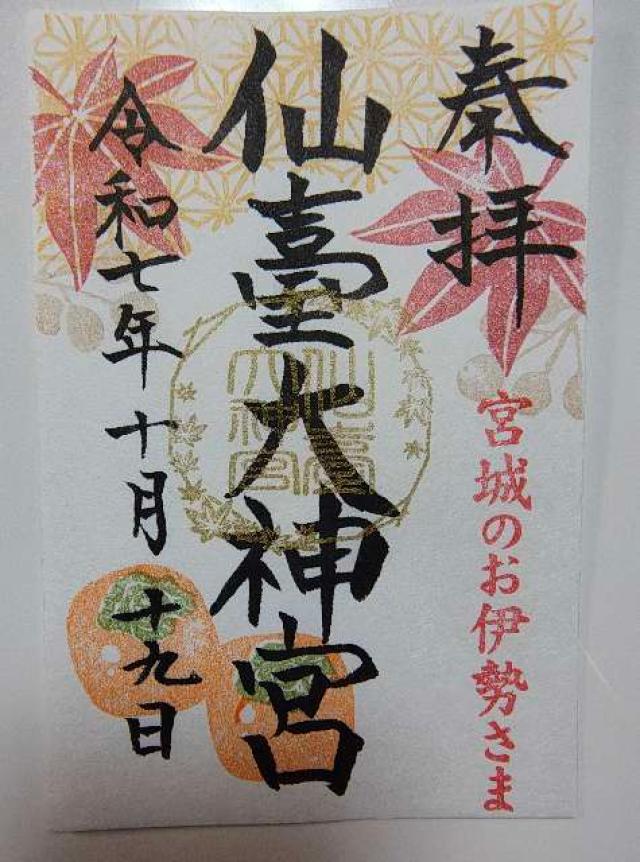 奉拝
宮城のお伊勢さま
仙臺大神宮
仙臺
大神宮
令和七年十月十九日